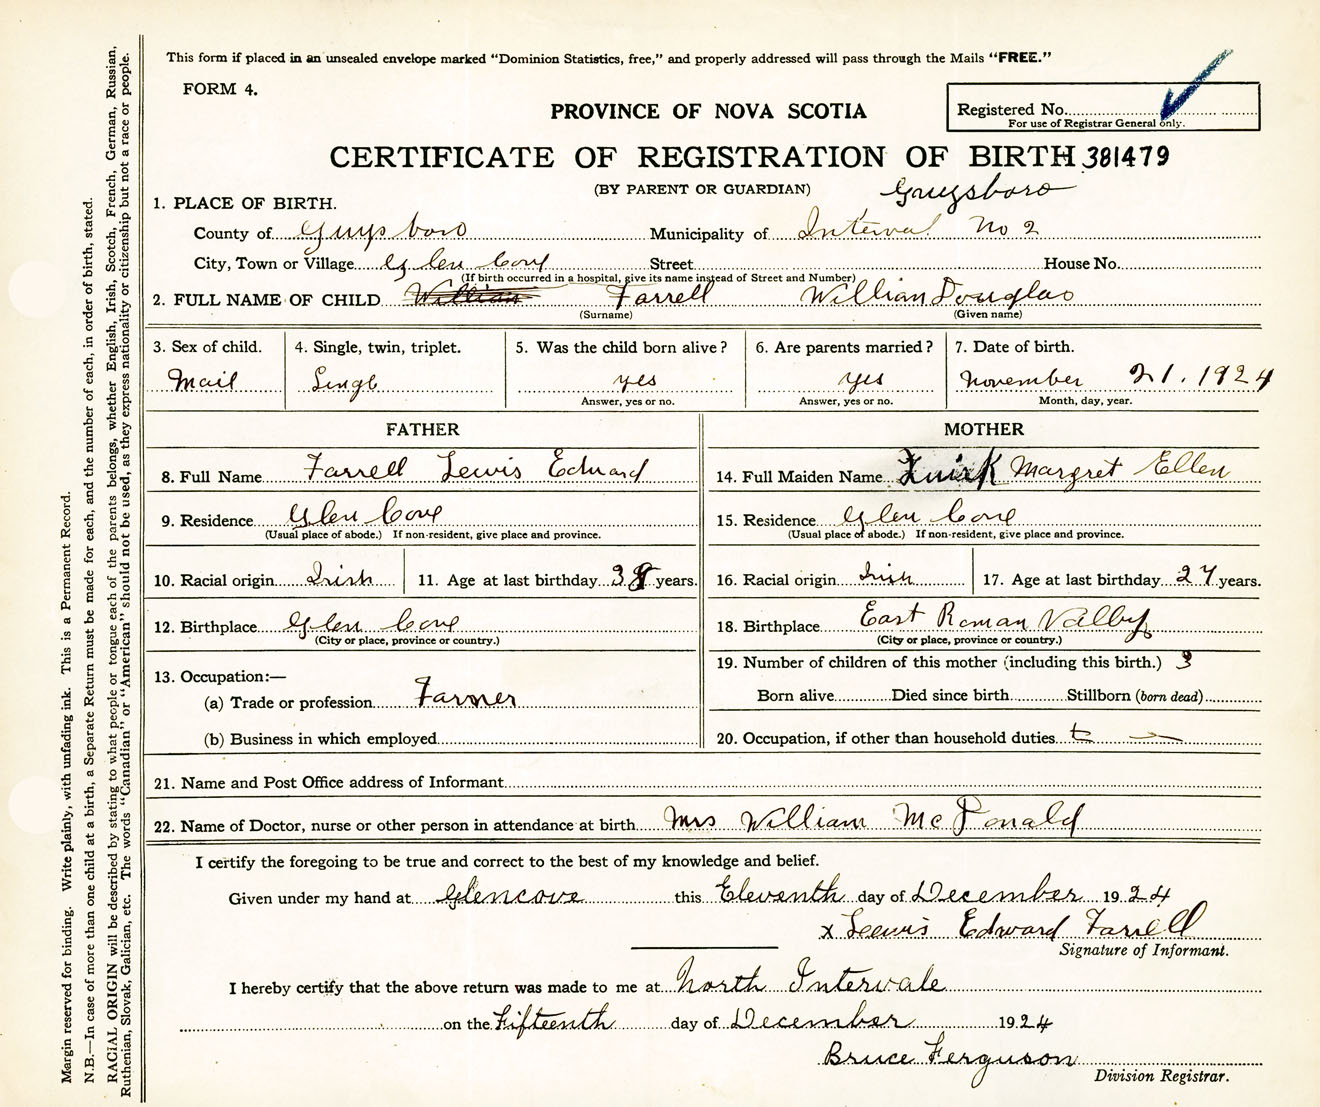 This form if placed in an unsealed envelope marked "Dominion Statistics, free," and properly addressed will pass through the Mails "FREE."
FORM 4.
PROVINCE OF NOVA SCOTIA
Registered No.
For use of Registrar General only.
CERTIFICATE OF REGISTRATION OF BIRTH 381479
(BY PARENT OR GUARDIAN) Guysboro
1. PLACE OF BIRTH.
County of Guysboro Municipality of Interval No 2
City, Town or Village Glen Cove Street House No.
(If birth occurred in a hospital, give its name instead of Street and Number)
2. FULL NAME OF CHILD William Farrell William Douglas
(Surname) (Given name)
3. Sex of child. 4. Single, twin, triplet. 5. Was the child born alive? 6. Are parents married? 7. Date of birth.
Mail Singl yes yes November 21. 1924
Answer, yes or no. Answer, yes or no. Month, day, year.
FATHER MOTHER
8. Full Name Farrell Lewis Edward 14. Full Maiden Name Quirk Margret Ellen
9. Residence Glen Cove 15. Residence Glen Cove
(Usual place of abode.) If non-resident, give place and province. (Usual place of abode.) If non-resident, give place and province.
10. Racial origin Irish 11. Age at last birthday years. 16. Racial origin Irish 17. Age at last birthday 27 years.
12. Birthplace Glen Cove 18. Birthplace East Roman Valley
(City or place, province or country.) (City or place, province or country.)
19. Number of children of this mother (including this birth.) 3
13. Occupation:—
(a) Trade or profession Farmer Born alive Died since birth Stillborn (born dead)
(b) Business in which employed 20. Occupation, if other than household duties
21. Name and Post Office address of Informant
22. Name of Doctor, nurse or other person in attendance at birth Mrs William McDonald
I certify the foregoing to be true and correct to the best of my knowledge and belief.
Given under my hand at Glencove this Eleventh day of December 1924
x Leewis Edward Farrell
Signature of Informant.
I hereby certify that the above return was made to me at North Intervale
on the Fifteenth day of December 1924
Bruce Ferguson
Division Registrar.
Margin reserved for binding. Write plainly, with unfading ink. This is a Permanent Record.
N.B.—In case of more than one child at a birth, a Separate Return must be made for each, and the number of each, in order of birth, stated.
RACIAL ORIGIN will be described by stating to what people or tongue each of the parents belongs, whether English, Irish, Scotch, French, German, Russian,
Ruthenian, Slovak, Galician, etc. The words "Canadian" or "American" should not be used, as they express nationality or citizenship but not a race or people.